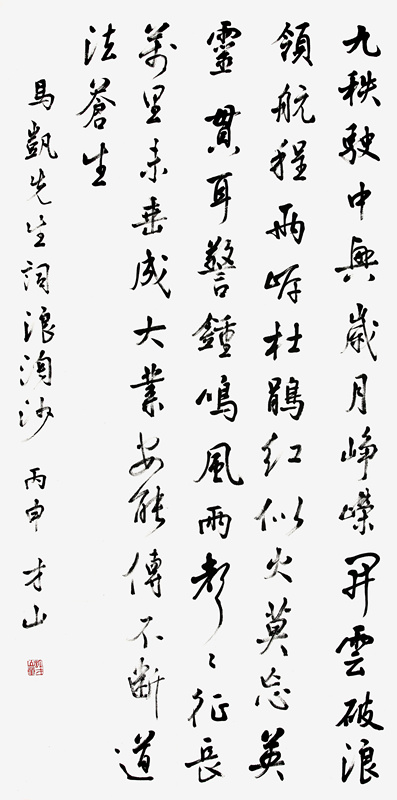 九秩駛中興歲月崢嶸開雲破浪
領航程兩岸杜鵑紅似火莫忘英
靈貫耳警鍾鳴風雨聲〻征長
萬里未垂成大業安能傳不斷道
法蒼生
馬凱先生詞浪淘沙 丙申 才山